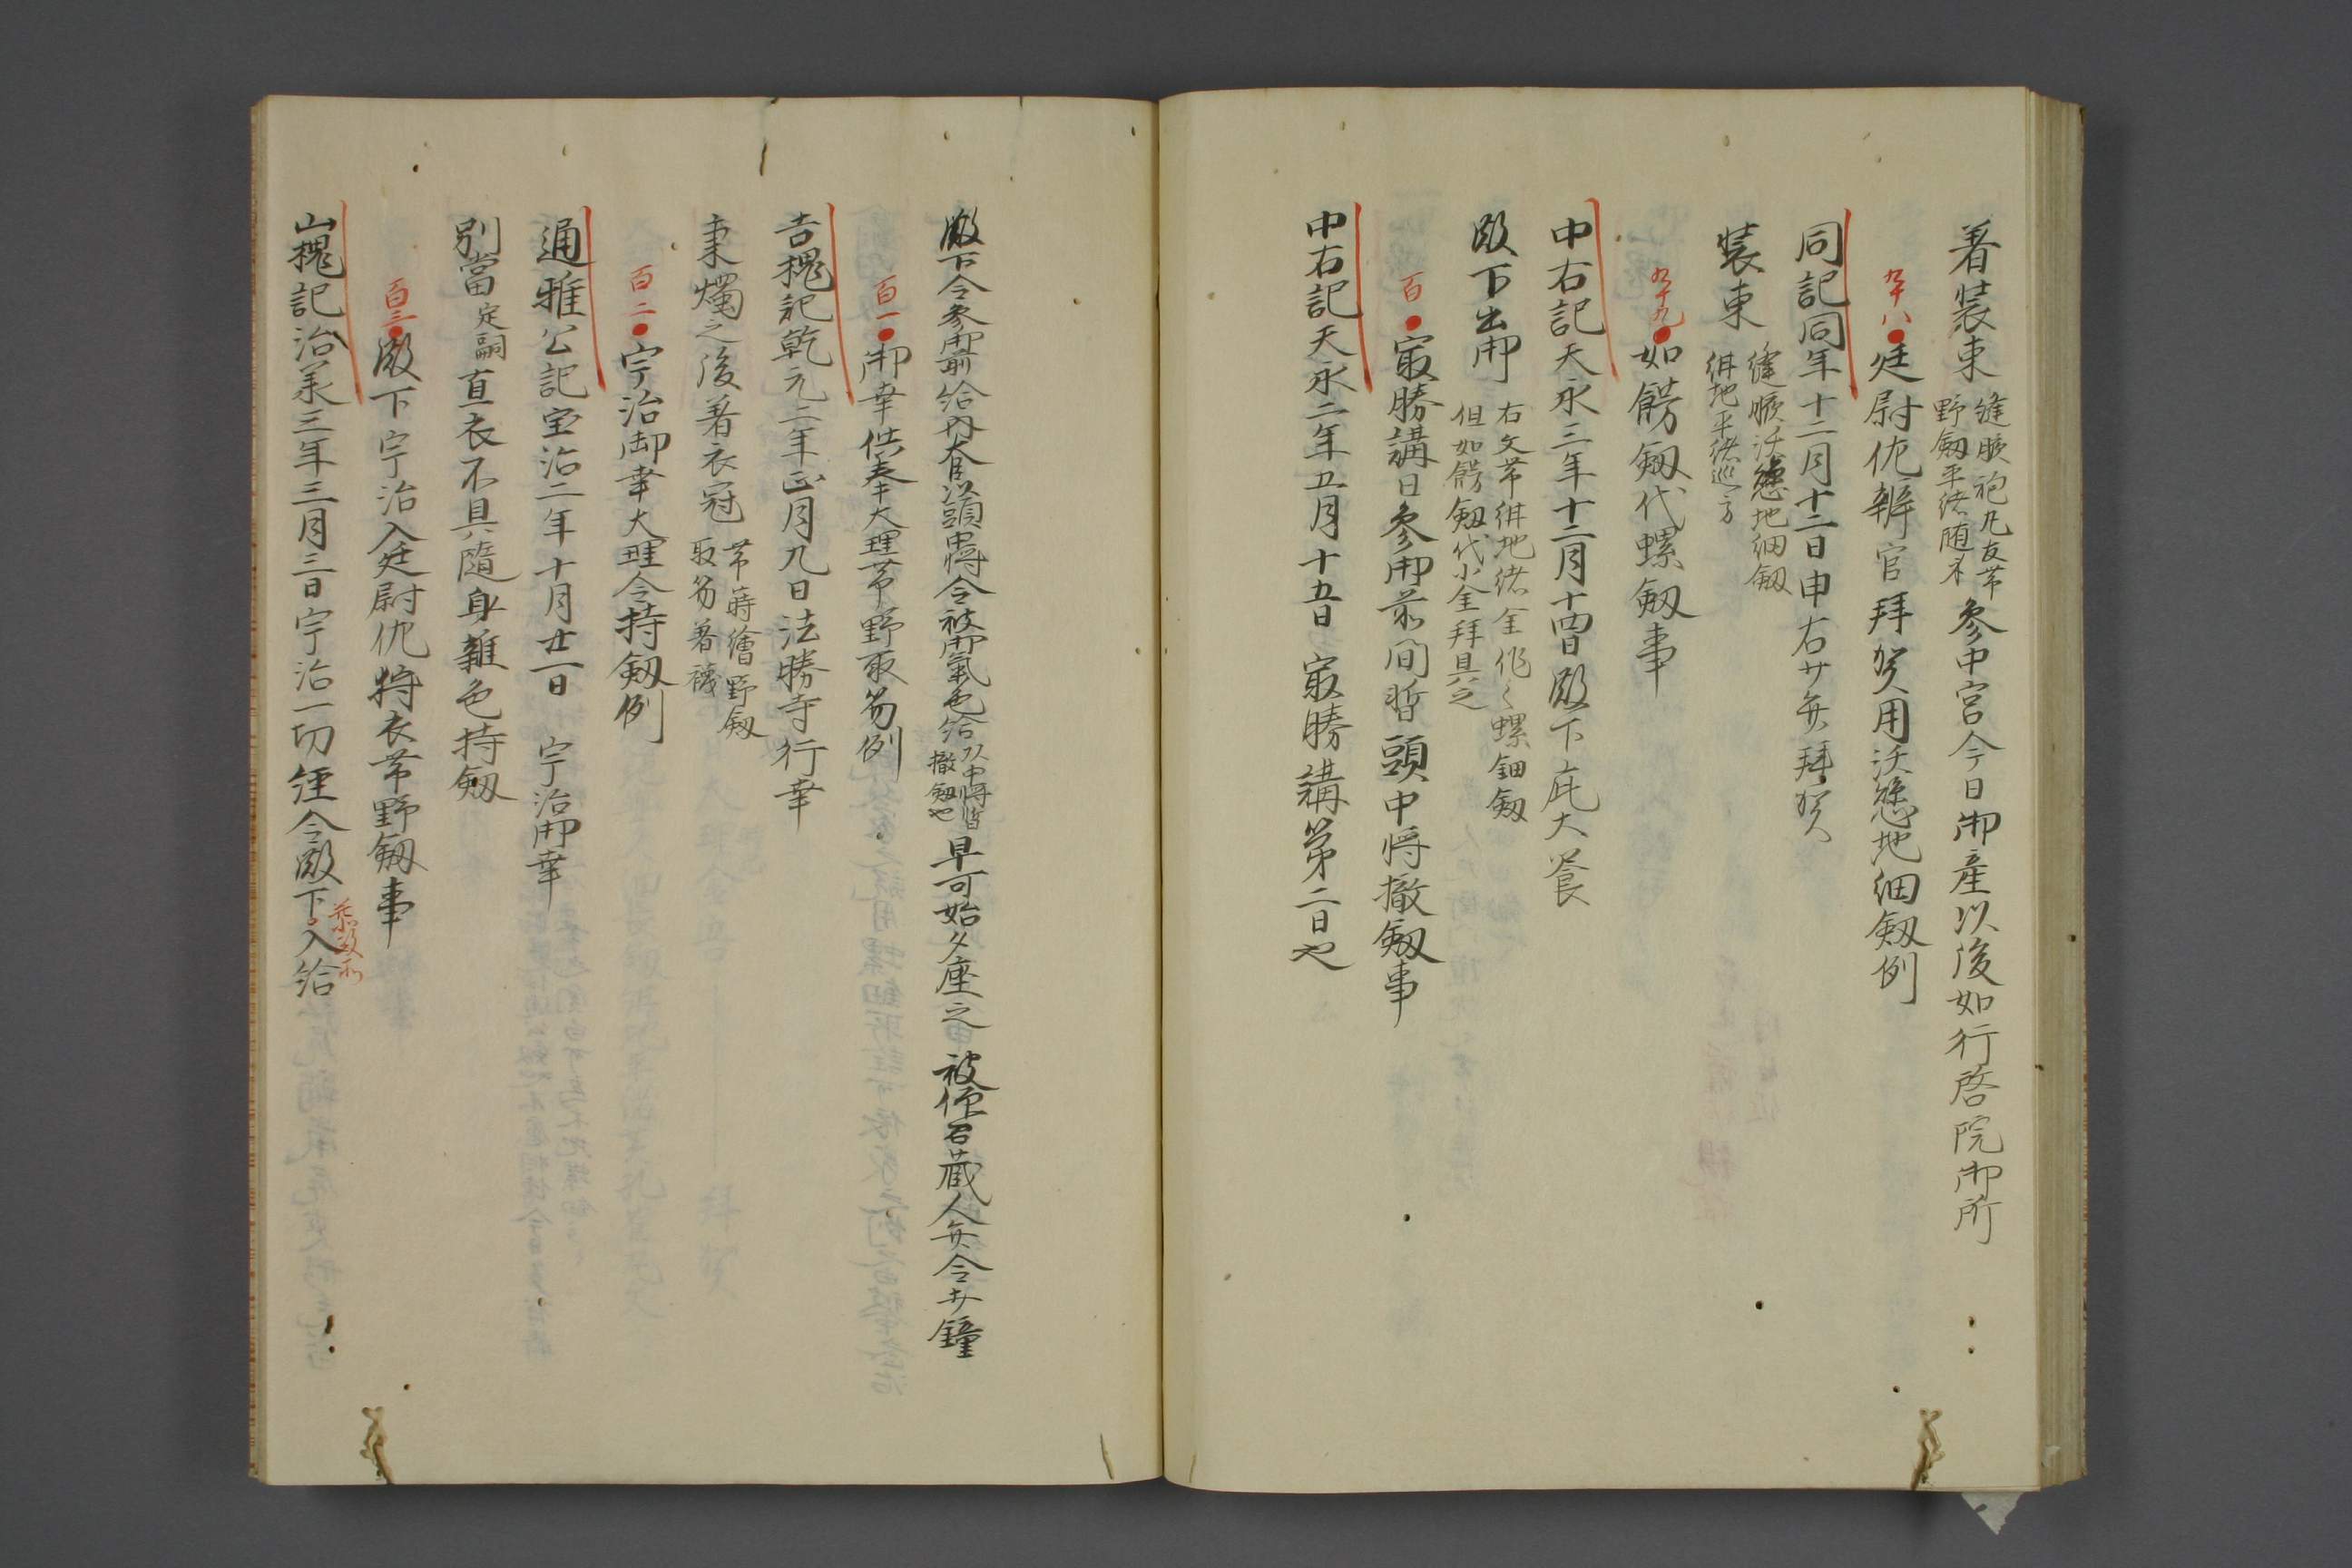 着装束縫腋袍丸友帯
野釼平緒随身参中宮今日御産以後如行啓院御所
九十八廷尉佐辨官拜賀用沃懸地細釼例
同記同年十二月十二日申右少弁拜賀
装束縫腋沃懸地細釼
紺地平緒巡方
九十九如餝釼代螺釼事
中右記天永三年十二月十四日殿下庇大饗
殿下出御右文帯紺地緒全作々螺鈿釼
但如餝釼代小金拜具之
百㝡勝講日参御前間暫頭中将撤釼事
中右記天永二年五月十五日㝡勝講第二日也
殿下令参御前給内大臣以頭中将令被御氣色給以中将暫
撤釼也早可始夕座之被仰召蔵人弁令打鐘
百一御幸供奉大理帯野釼取笏例
吉槐記乾元二年正月九日法勝寺行幸
秉燭之後著衣冠帯蒔繪野釼
取笏著襪
百二宇治御幸大理令持釼例
通雅公記宝治二年十月廿一日宇治御幸
別當定嗣直衣不具隨身雜色持釼
百三殿下宇治入廷尉佐狩衣帯野釼事
山槐記治承三年三月三日宇治一切経会殿下入給